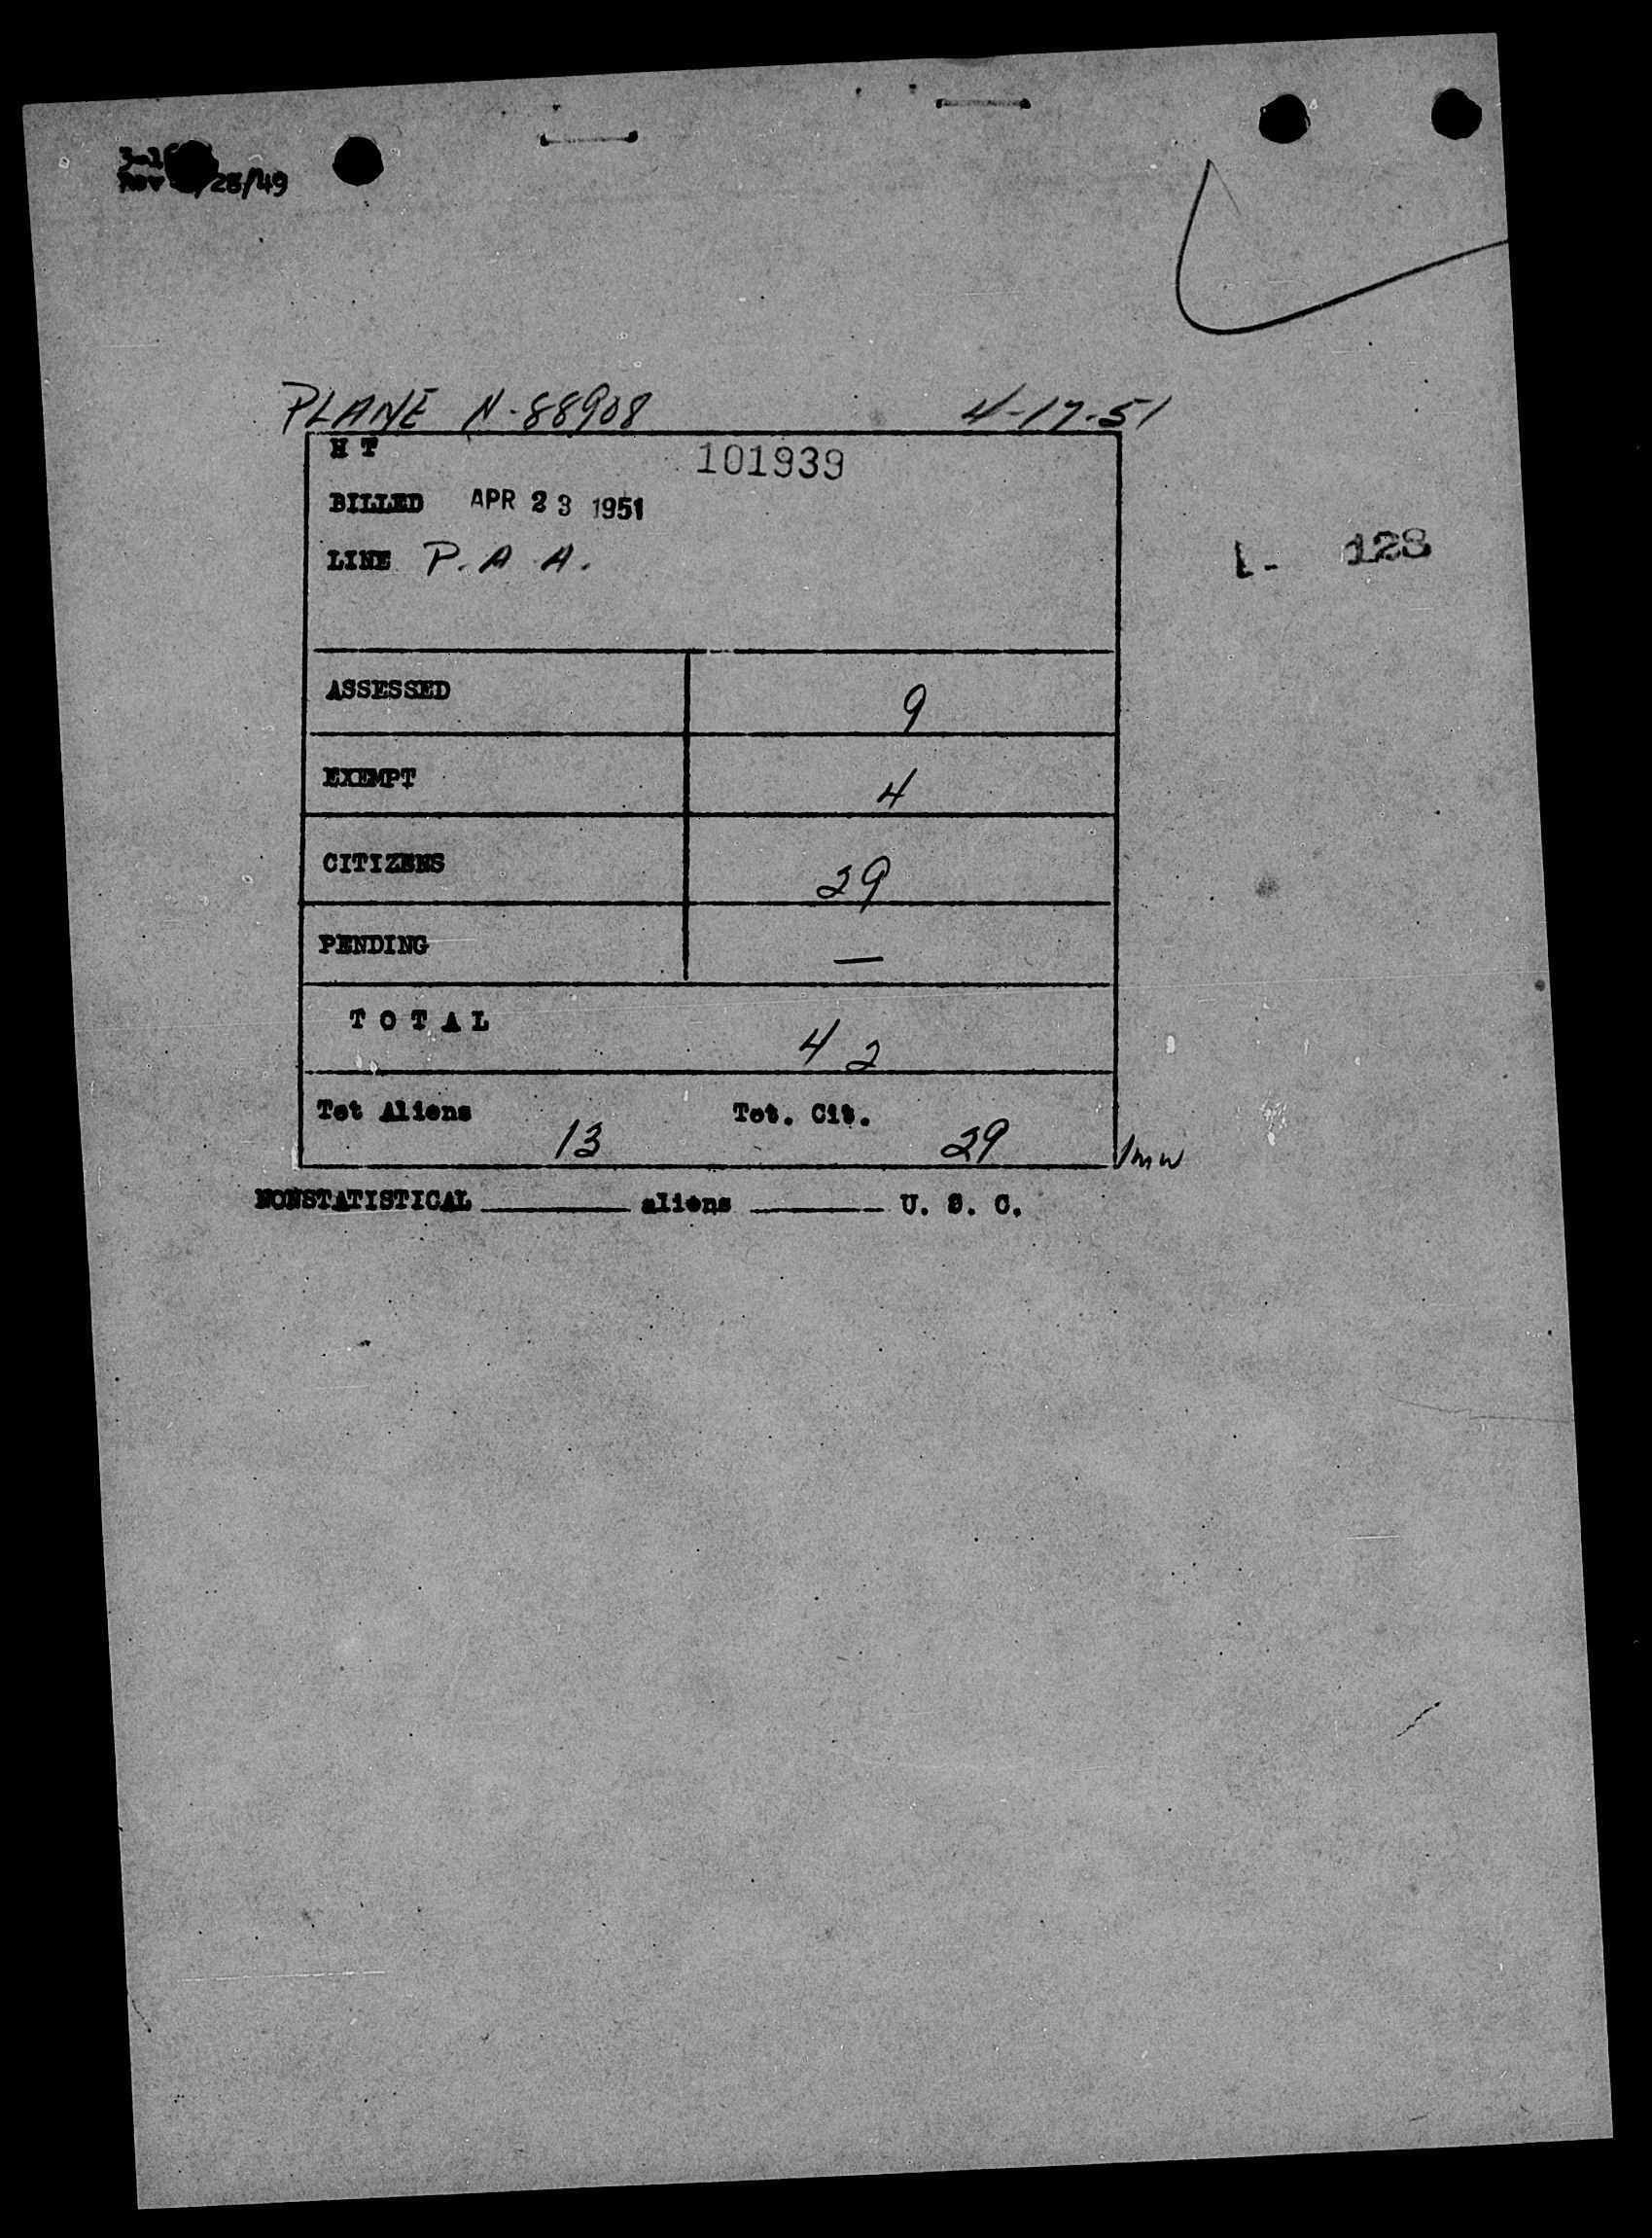 Rev /28/49
PLANE N-88908 4-17-51
H T 101939
BILLED APR 23 1951
LINE P. A. A.
1- 128
ASSESSED 9
EXEMPT 4
CITIZENS 29
PENDING —
T O T A L 42
Tot Aliens 13 Tot. Cit. 29
NONSTATISTICAL ________ aliens ________ U. S. C.